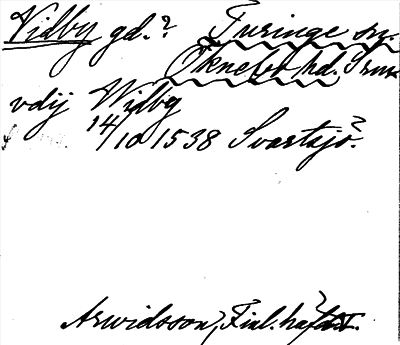 Vidby gd.? Turinge sn.
Öknebo hd. Srm
vdij Widby
14/10 1538 Svartsjö?
Arwidsson, Finl. häfder I.